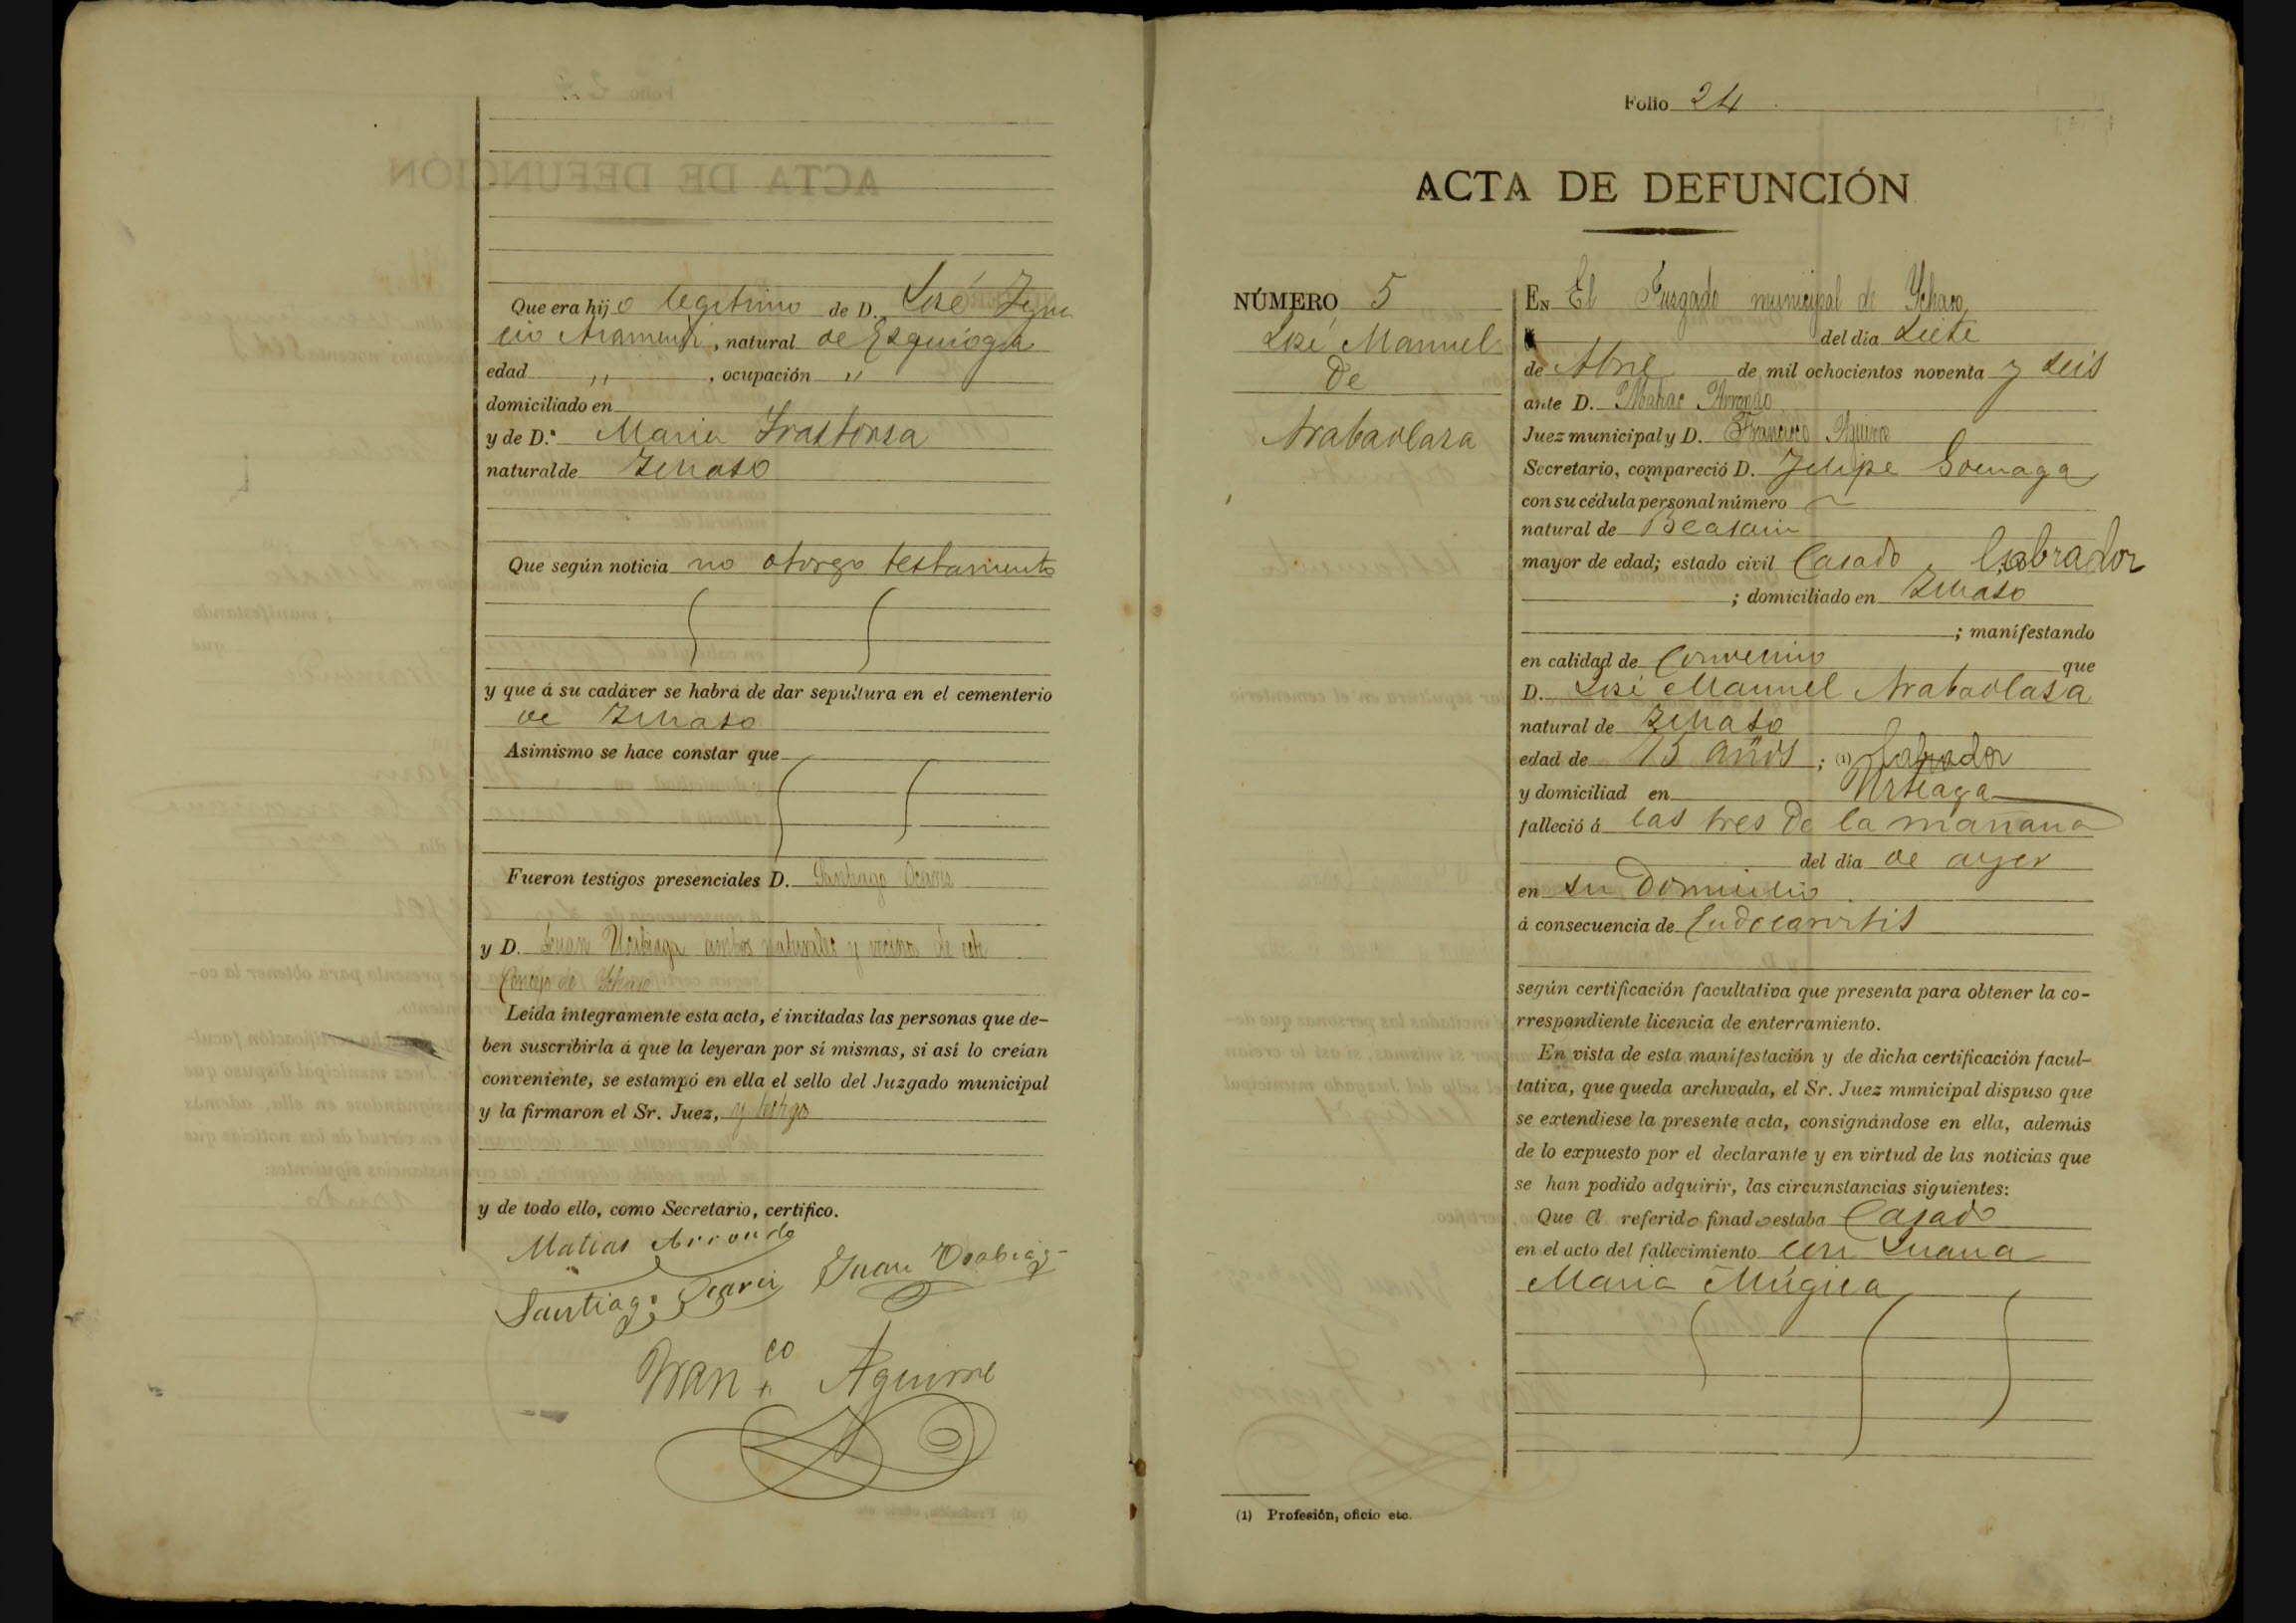 Que era hijo legitimo de D. José Igna
cio Aramendi, natural de Ezquioga
edad " , ocupación "
domiciliado en
y de D.ª Maria Irastorsa
natural de Ichaso
Que según noticia no otorgo testamento
y que á su cadáver se habrá de dar sepultura en el cementerio
de Ichaso
Asimismo se hace constar que
Fueron testigos presenciales D. Santiago Ocariz
y D. Juan Usabiaga ambos naturales y vecinos de este
Concejo de Ychaso
Leída íntegramente esta acta, é invitadas las personas que de-
ben suscribirla á que la leyeran por sí mismas, si así lo creían
conveniente, se estampó en ella el sello del Juzgado municipal
y la firmaron el Sr. Juez, y testigos
y de todo ello, como Secretario, certifico.
Matias Arrondo
Santiago Ocariz Juan Usabiaga
Fran.co Aguirre
Folio 24
ACTA DE DEFUNCIÓN
NÚMERO 5
José Manuel
De
Arabaolaza
EN El Juzgado municipal de Ychaso,
del dia siete
de Abril de mil ochocientos noventa y seis
ante D. Matias Arrondo
Juez municipal y D. Francisco Aguirre
Secretario, compareció D. Felipe Goenaga
con su cédula personal número
natural de Beasain
mayor de edad; estado civil Casado, Labrador
; domiciliado en Ichaso
; manifestando
en calidad de Convecino que
D. José Manuel Arabaolasa
natural de Ichaso
edad de 75 años ; (1) Labrador
y domiciliad en Urteaga
falleció á las tres De la mañana
del día de ayer
en su Domicilio
á consecuencia de Endocarditis
según certificación facultativa que presenta para obtener la co-
rrespondiente licencia de enterramiento.
En vista de esta manifestación y de dicha certificación facul-
tativa, que queda archivada, el Sr. Juez mnnicipal dispuso que
se extendiese la presente acta, consignándose en ella, además
de lo expuesto por el declarante y en virtud de las noticias que
se han podido adquirir, las circunstancias siguientes:
Que el referido finado estaba Casado
en el acto del fallecimiento con Juana
Maria Múgica
(1) Profesión, oficio etc.